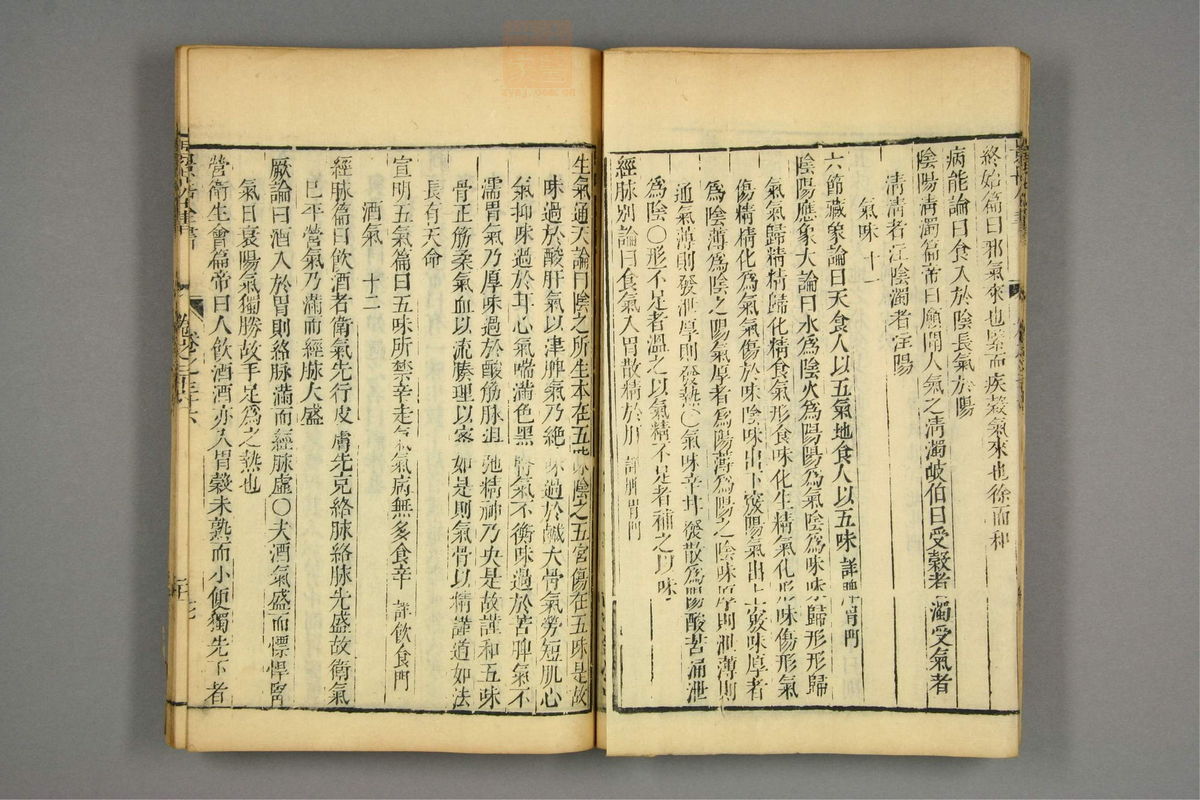 終始篇曰邪氣來也緊而疾穀氣來也徐而和
病能論曰食入於陰長氣於陽
陰陽清濁篇帝曰願聞人氣之清濁岐伯曰受穀者濁受氣者
清清者注陰濁者注陽
氣味 十一
六節藏象論曰天食人以五氣地食人以五味 詳脾胃門
陰陽應象大論曰水為陰火為陽陽為氣陰為味味歸形形歸
氣氣歸精精歸化精食氣形食味化生精氣化形味傷形氣
傷精精化為氣氣傷於味陰味出下竅陽氣出上竅味厚者
為陰薄為陰之陽氣厚者為陽薄為陽之陰味厚則泄薄則
通氣薄則發泄厚則發熱〇氣味辛甘發散為陽酸苦涌泄
為陰〇形不足者溫之以氣精不足者補之以味
經脉別論曰食氣入胃散精於肝 詳脾胃門
生氣通天論曰陰之所生本在五味陰之五宮傷在五味是故
味過於酸肝氣以津脾氣乃絕味過於鹹大骨氣勞短肌心
氣抑味過於甘心氣喘滿色黑腎氣不衡味過於苦脾氣不
濡胃氣乃厚味過於酸筋脉沮弛精神乃央是故謹和五味
骨正筋柔氣血以流腠理以密如是則氣骨以精謹道如法
長有天命
宣明五氣篇曰五味所禁辛走氣氣病無多食辛 詳飲食門
酒氣 十二
經脉篇曰飲酒者衛氣先行皮膚先充絡脉絡脉先盛故衛氣
巳平營氣乃滿而經脉大盛
厥論曰酒入於胃則絡脉滿而經脉虛〇夫酒氣盛而慓悍腎
氣日衰陽氣獨勝故手足為之熱也
營衛生會篇帝曰人飲酒酒亦入胃穀未熟而小便獨先下者